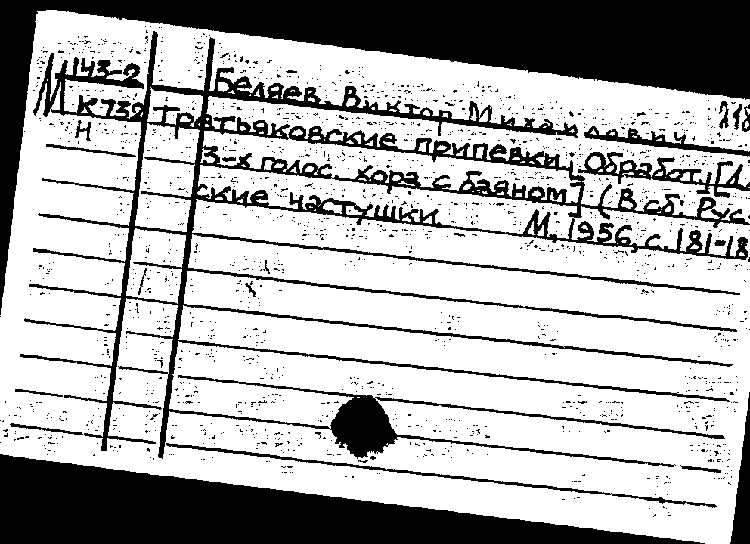 М 143-2
К 732
Н
Беляев, Виктор Михайлович. 218
Третьяковские припевки; Обработ. [для
3-х голос. хора с баяном] (В сб: Рус-
ские частушки. М, 1956, с. 181-18